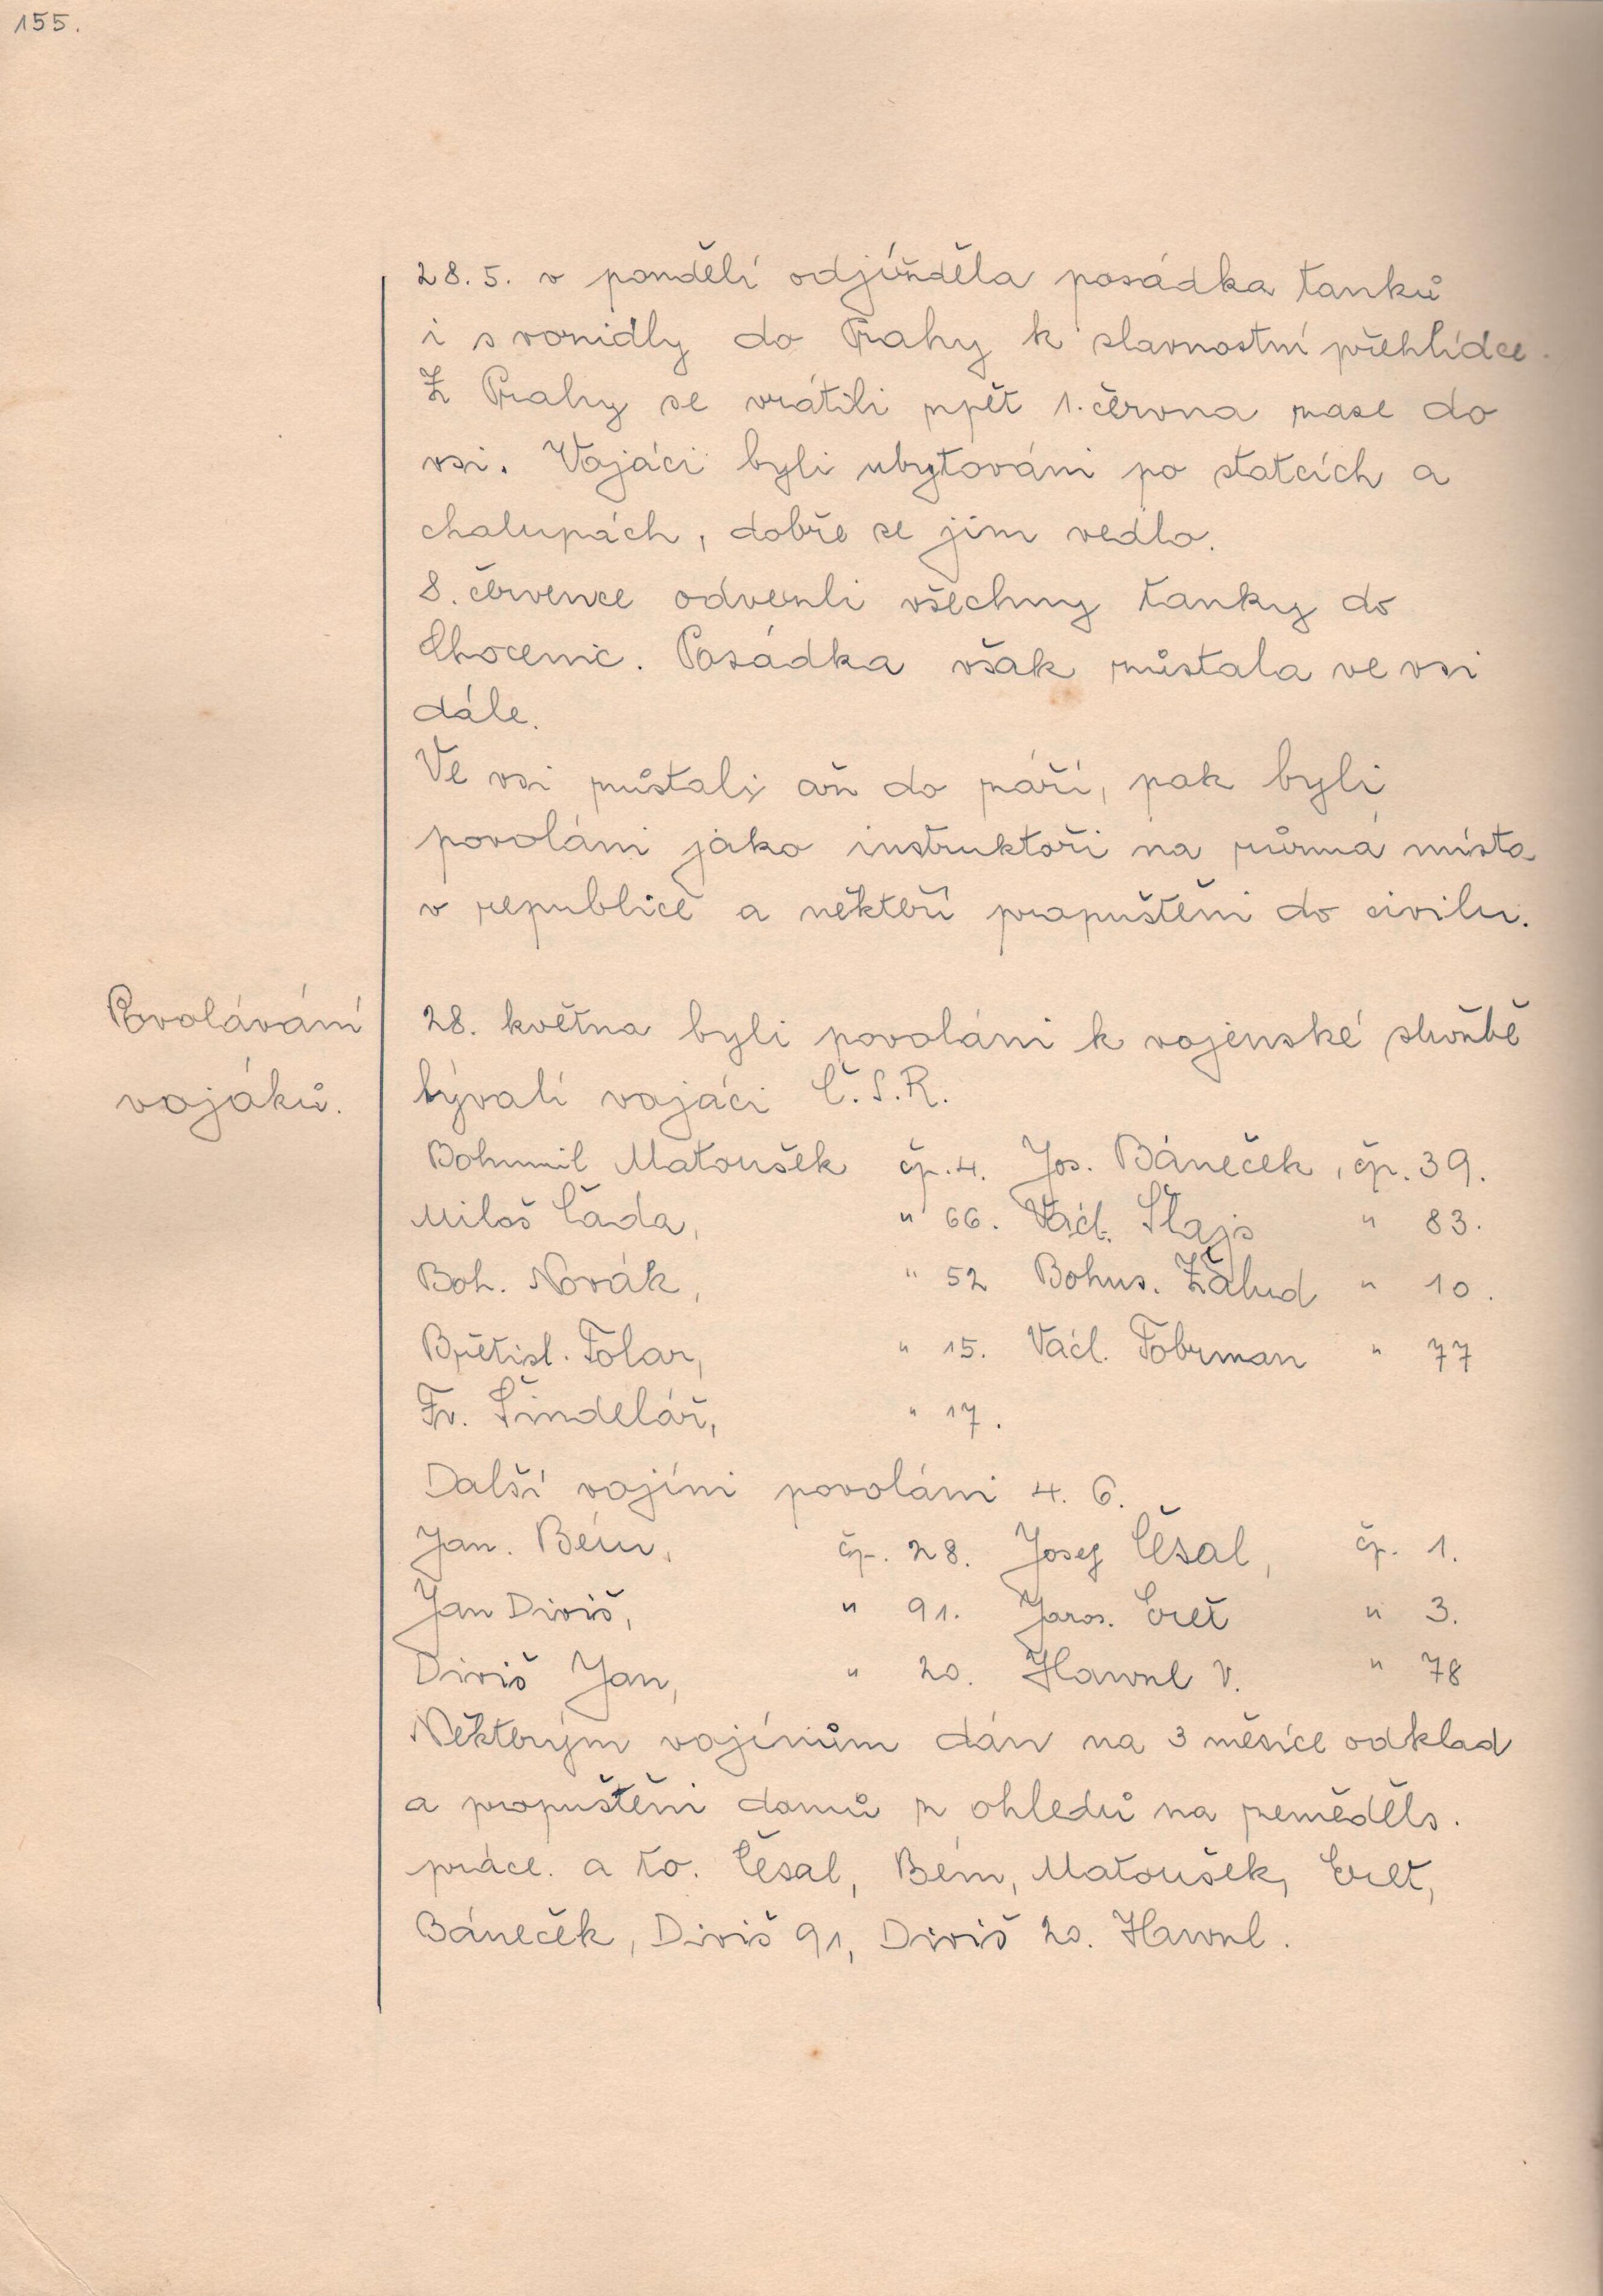 155.
28. 5. v pondělí odjížděla posádka tanků
i s vozidly do Prahy k slavnostní přehlídce.
Z Prahy se vrátili zpět 1. června zase do
vsi. Vojáci byli ubytováni po statcích a
chalupách, dobře se jim vedlo.
8. července odvezli všechny tanky do
Chocenic. Posádka však zůstala ve vsi
dále.
Ve vsi zůstali až do září, pak byli
povoláni jako instruktoři na různá místa
v republice a někteří propuštěni do civilu.
Povolávání
vojáků.
28. května byli povoláni k vojenské službě
bývalí vojáci Č.S.R.
Bohumil Matoušek čp. 4. Jos. Báneček, čp. 39.
Miloš Čada, " 66. Václ. Šlajs " 83.
Boh. Novák, " 52 Bohus. Žalud " 10.
Břetisl. Folar, " 15. Václ. Fobrman " 77
Fr. Šindelář, " 17.
Další vojíni povoláni 4. 6.
Jan. Bém, čp. 28. Josef Česal, čp. 1.
Jan Diviš, " 91. Jaros. Cvet " 3.
Diviš Jan, " 20. Hawel V. " 78
Některým vojínům dán na 3 měsíce odklad
a propuštěni domů z ohledů na zeměděls.
práce. a to. Česal, Bém, Matoušek, Cvet,
Báneček, Diviš 91, Diviš 20. Hawel.